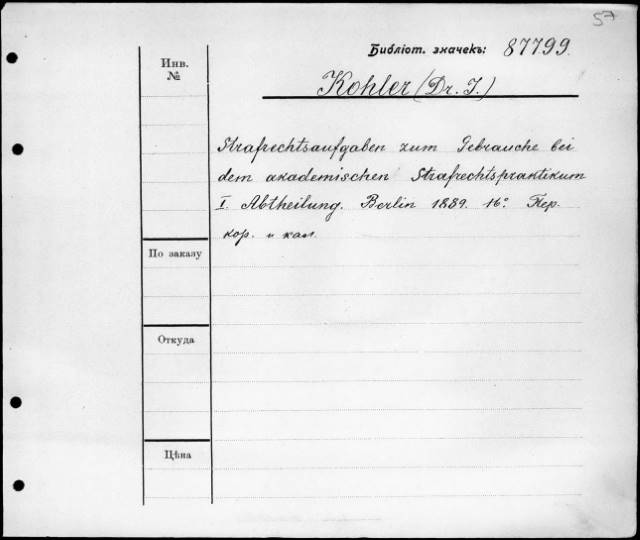 57
Библіот. значекъ: 87799.
Инв.
№
Kohler (Dr. J.)
Strafrechtsaufgaben zum Gebrauche bei
dem akademischen Strafrechtspraktikum
I. Abtheilung. Berlin 1889. 16°. Пер.
кор. и кал.
По заказу
Откуда
Цѣна